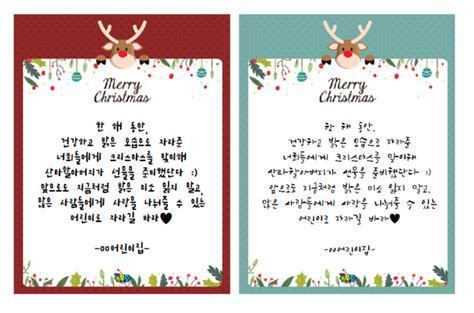 Merry
Christmas
한 해 동안,
건강하고 밝은 모습으로 자라준
너희들에게 크리스마스를 맞이해
산타할아버지가 선물을 준비했단다 :)
앞으로도 지금처럼 밝은 미소 잃지 말고,
많은 사람들에게 사랑을 나눠줄 수 있는
어린이로 자라길 바라♥
-00어린이집-
Merry
Christmas
한 해 동안,
건강하고 밝은 모습으로 자라준
너희들에게 크리스마스를 맞이해
산타할아버지가 선물을 준비했단다 :)
앞으로도 지금처럼 밝은 미소 잃지 말고,
많은 사람들에게 사랑을 나눠줄 수 있는
어린이로 자라길 바라♥
-00어린이집-